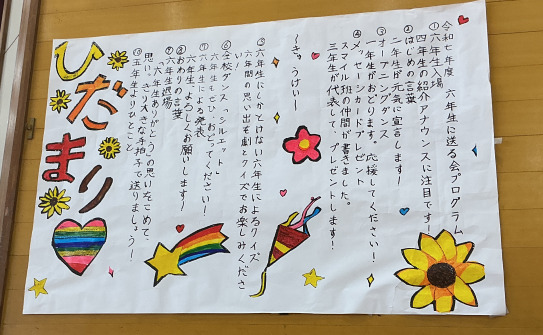 令和七年度 六年生に送る会プログラム
①六年生入場
四年生の紹介アナウンスに注目です!
②はじめの言葉
二年生が元気に宣言します!
③オープニングダンス
一年生がおどります。応援してください!
④メッセージカードプレゼント
スマイル班の仲間が書きました。
三年生が代表して、プレゼントします!
~きゅうけい~
⑤六年生にしかとけない六年生によるクイズ
六年間の思い出を劇とクイズでお楽しみくださ
い!
⑥全校ダンス「シルエット」
六年生もぜひ、おどってください!
⑦六年生による発表
六年生、よろしくお願いします!
⑧おわりの言葉
⑨六年生退場
「六年生ありがとう」の思いをこめて、
思いっきり大きな手拍子で送りましょう!
⑩五年生よりひとこと
ひだまり